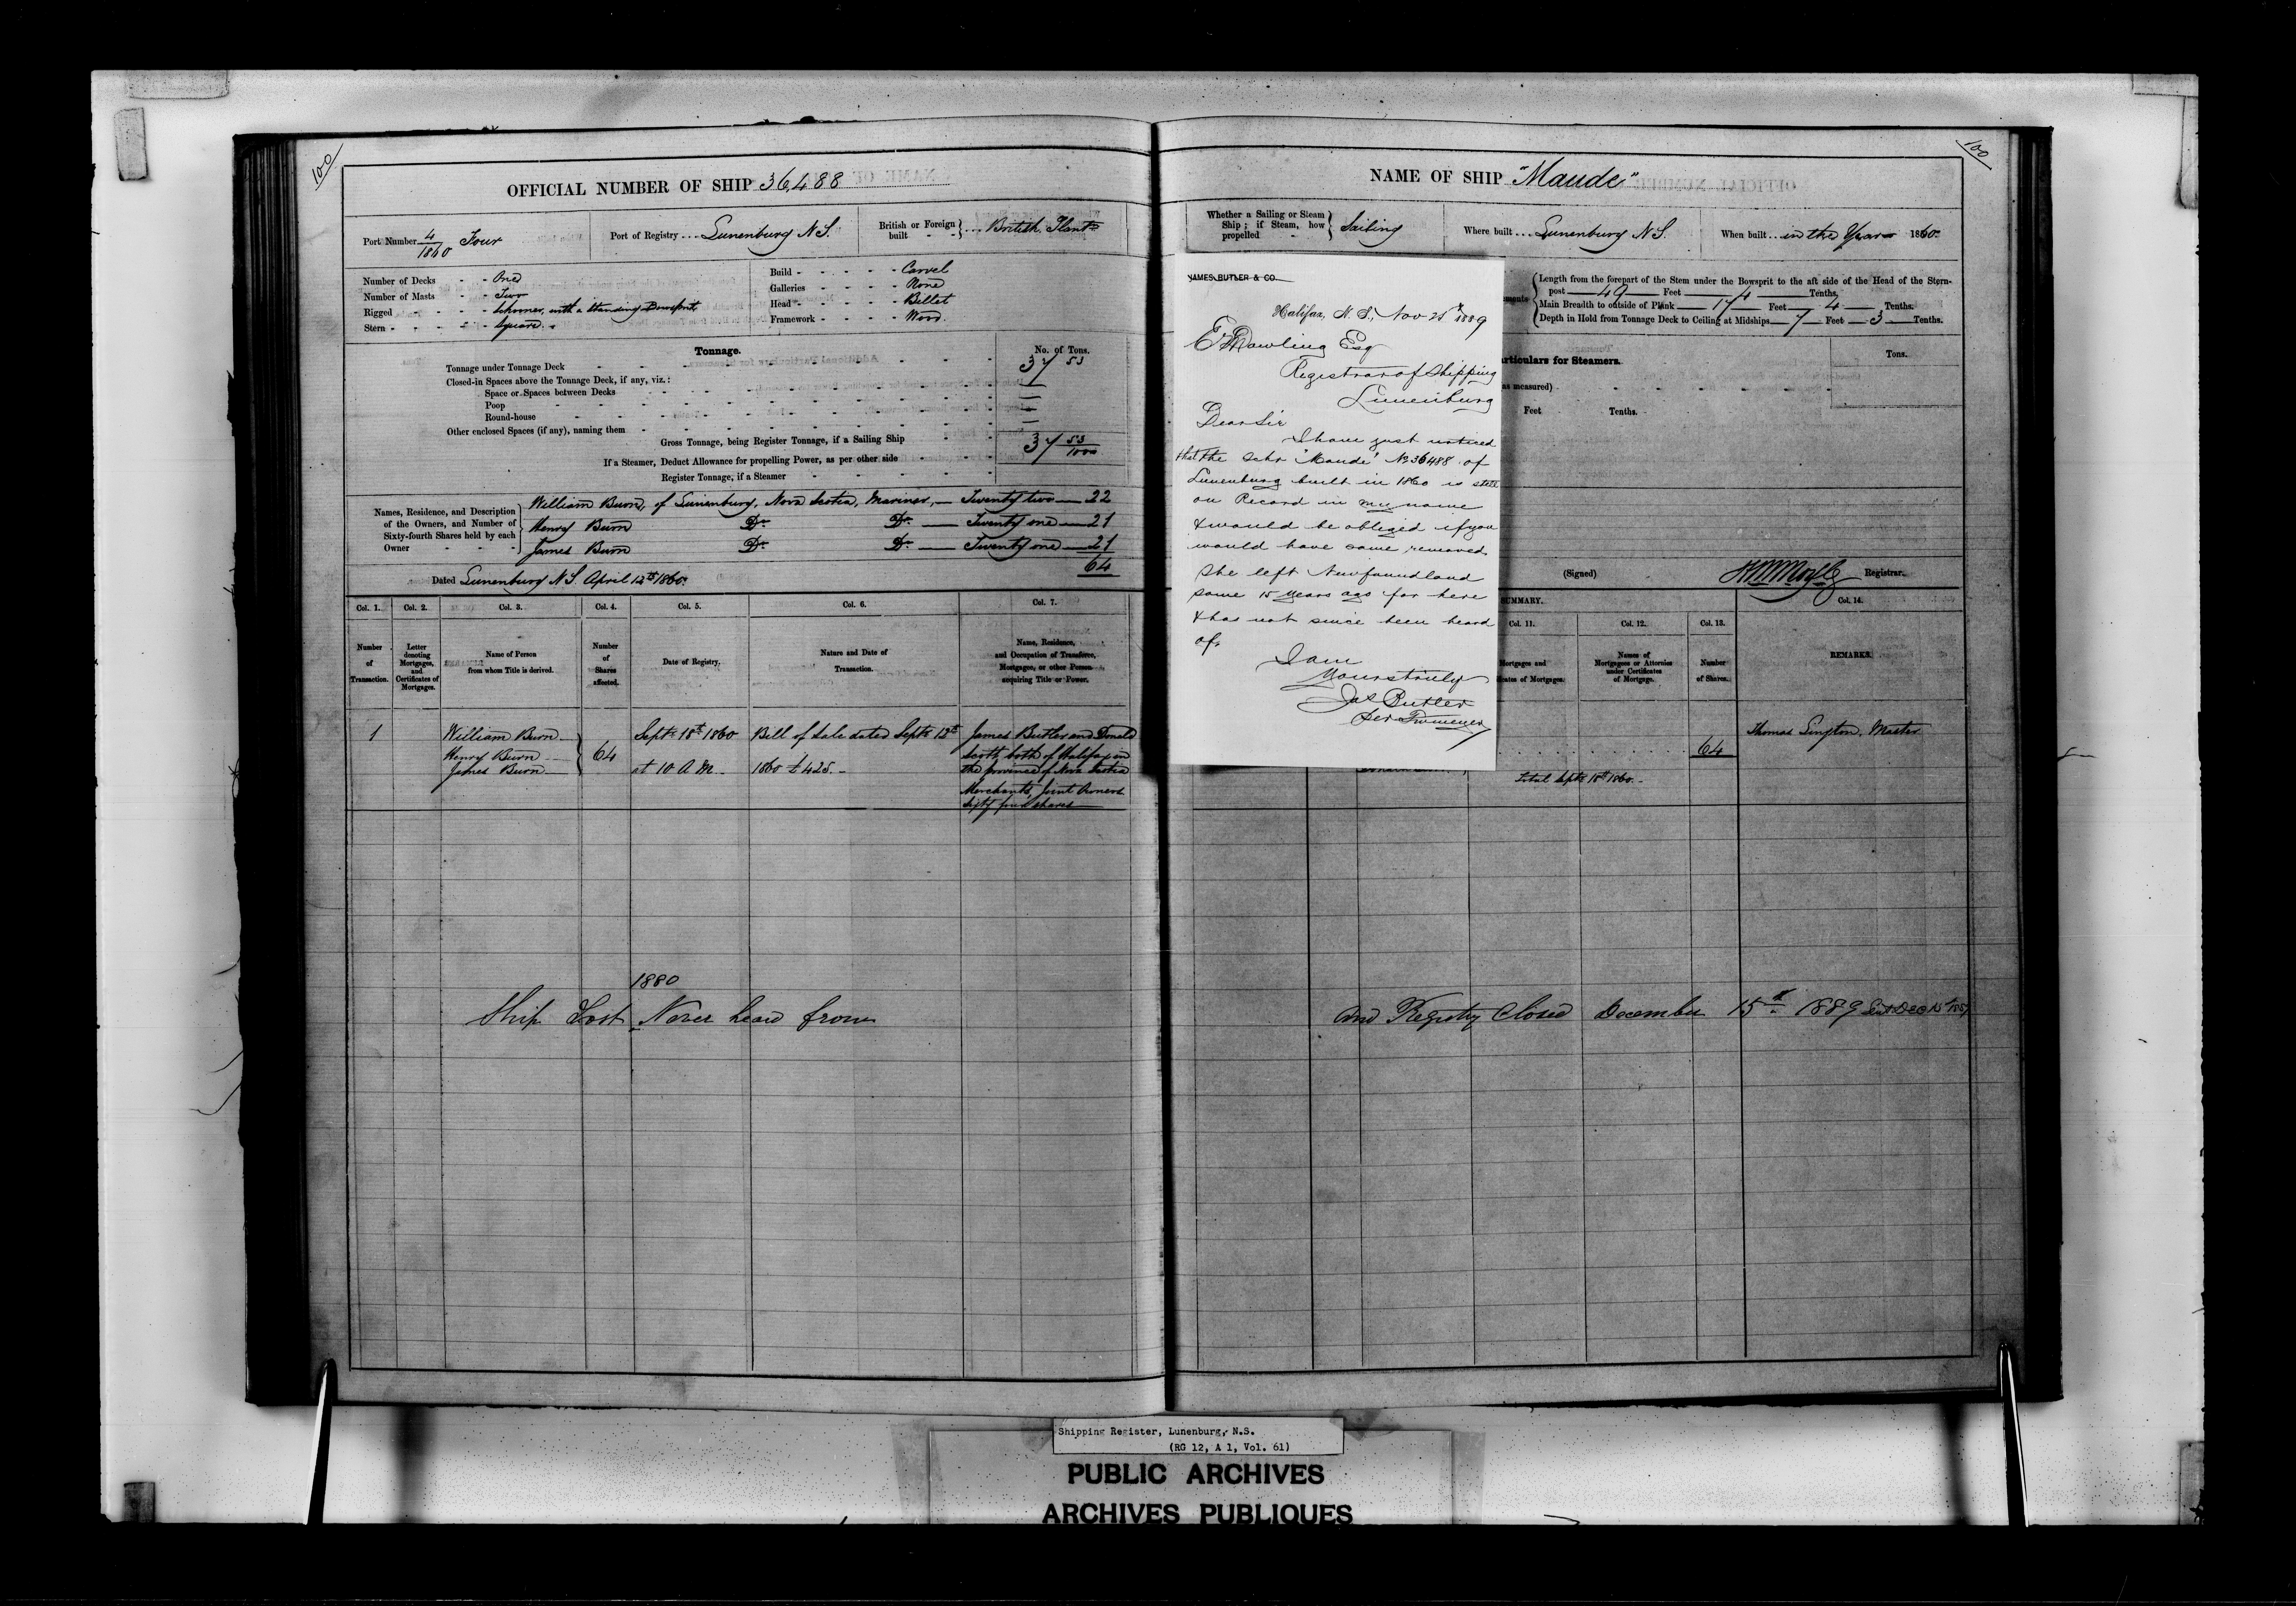 100
OFFICIAL NUMBER OF SHIP 36488
Port Number 4/1860 Four
Port of Registry Lunenburg N.S.
British or Foreign built - - British Plant
Number of Decks - - One
Number of Masts - - Two
Rigged - - Schooner, with a standing Bowsprit
Stern - - Square
Build - - Carvel
Galleries - - None
Head - - Billet
Framework - - Wood
Tonnage.
No. of Tons.
Tonnage under Tonnage Deck 37 53
Closed-in Spaces above the Tonnage Deck, if any, viz.:
Space or Spaces between Decks —
Poop —
Round-house —
Other enclosed Spaces (if any), naming them —
Gross Tonnage, being Register Tonnage, if a Sailing Ship 37 53/100
If a Steamer, Deduct Allowance for propelling Power, as per other side
Register Tonnage, if a Steamer
Names, Residence, and Description of the Owners, and Number of Sixty-fourth Shares held by each Owner
William Burn, of Lunenburg, Nova Scotia, Mariner, — Twenty two — 22
Henry Burn Do Do — Twenty one — 21
James Burn Do Do — Twenty one — 21
64
Dated Lunenburg N.S. April 12th 1860.
Col. 1. Col. 2. Col. 3. Col. 4. Col. 5. Col. 6. Col. 7.
Number of Transaction.
Letter denoting Mortgages, and Certificates of Mortgages.
Name of Person from whom Title is derived.
Number of Shares affected.
Date of Registry.
Nature and Date of Transaction.
Name, Residence, and Occupation of Transferee, Mortgagee, or other Person acquiring Title or Power.
1
William Burn
Henry Burn
James Burn
64
Septr 18th 1860
at 10 A M
Bill of Sale dated Septr 13th
1860 £425.-
James Butler and Donald
Scott, both of Halifax in
the province of Nova Scotia
Merchants, Joint Owners
Sixty four shares
1880
Ship Lost Never heard from
100
NAME OF SHIP "Maude"
Whether a Sailing or Steam Ship; if Steam, how propelled Sailing
Where built Lunenburg N.S.
When built in the Year 1860.
Length from the forepart of the Stem under the Bowsprit to the aft side of the Head of the Stern-
post 49 Feet 4 Tenths,
Main Breadth to outside of Plank 17 Feet 4 Tenths.
Depth in Hold from Tonnage Deck to Ceiling at Midships 7 Feet 3 Tenths.
Particulars for Steamers.
Tons.
as measured)
Feet Tenths.
(Signed) Registrar.
SUMMARY.
Col. 11. Col. 12. Col. 13. Col. 14.
Mortgages and
Certificates of Mortgages.
Names of Mortgagees or Attornies under Certificates of Mortgage.
Number of Shares.
REMARKS.
64
Total Septr 18th 1860.-
Thomas Master
And Registry Closed December 15th 1889
JAMES BUTLER & CO.
Halifax, N. S., Nov 25th 1889
E Dowling Esq
Registrar of Shipping
Lunenburg
Dear Sir
I have just noticed
that the Schr 'Maude' No 36488 of
Lunenburg built in 1860 is still
on Record in my name
& would be obliged if you
would have same removed
She left Newfoundland
some 15 years ago for here
& has not since been heard
of.
I am
Yours truly
Jas Butler
Shipping Register, Lunenburg, N.S.
(RG 12, A 1, Vol. 61)
PUBLIC ARCHIVES
ARCHIVES PUBLIQUES